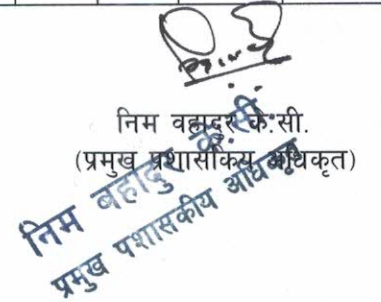 निम वहादुर के.सी.
(प्रमुख प्रशासकिय अधिकृत)
निम बहादुर के.सी.
प्रमुख पशासकीय अधिकृत